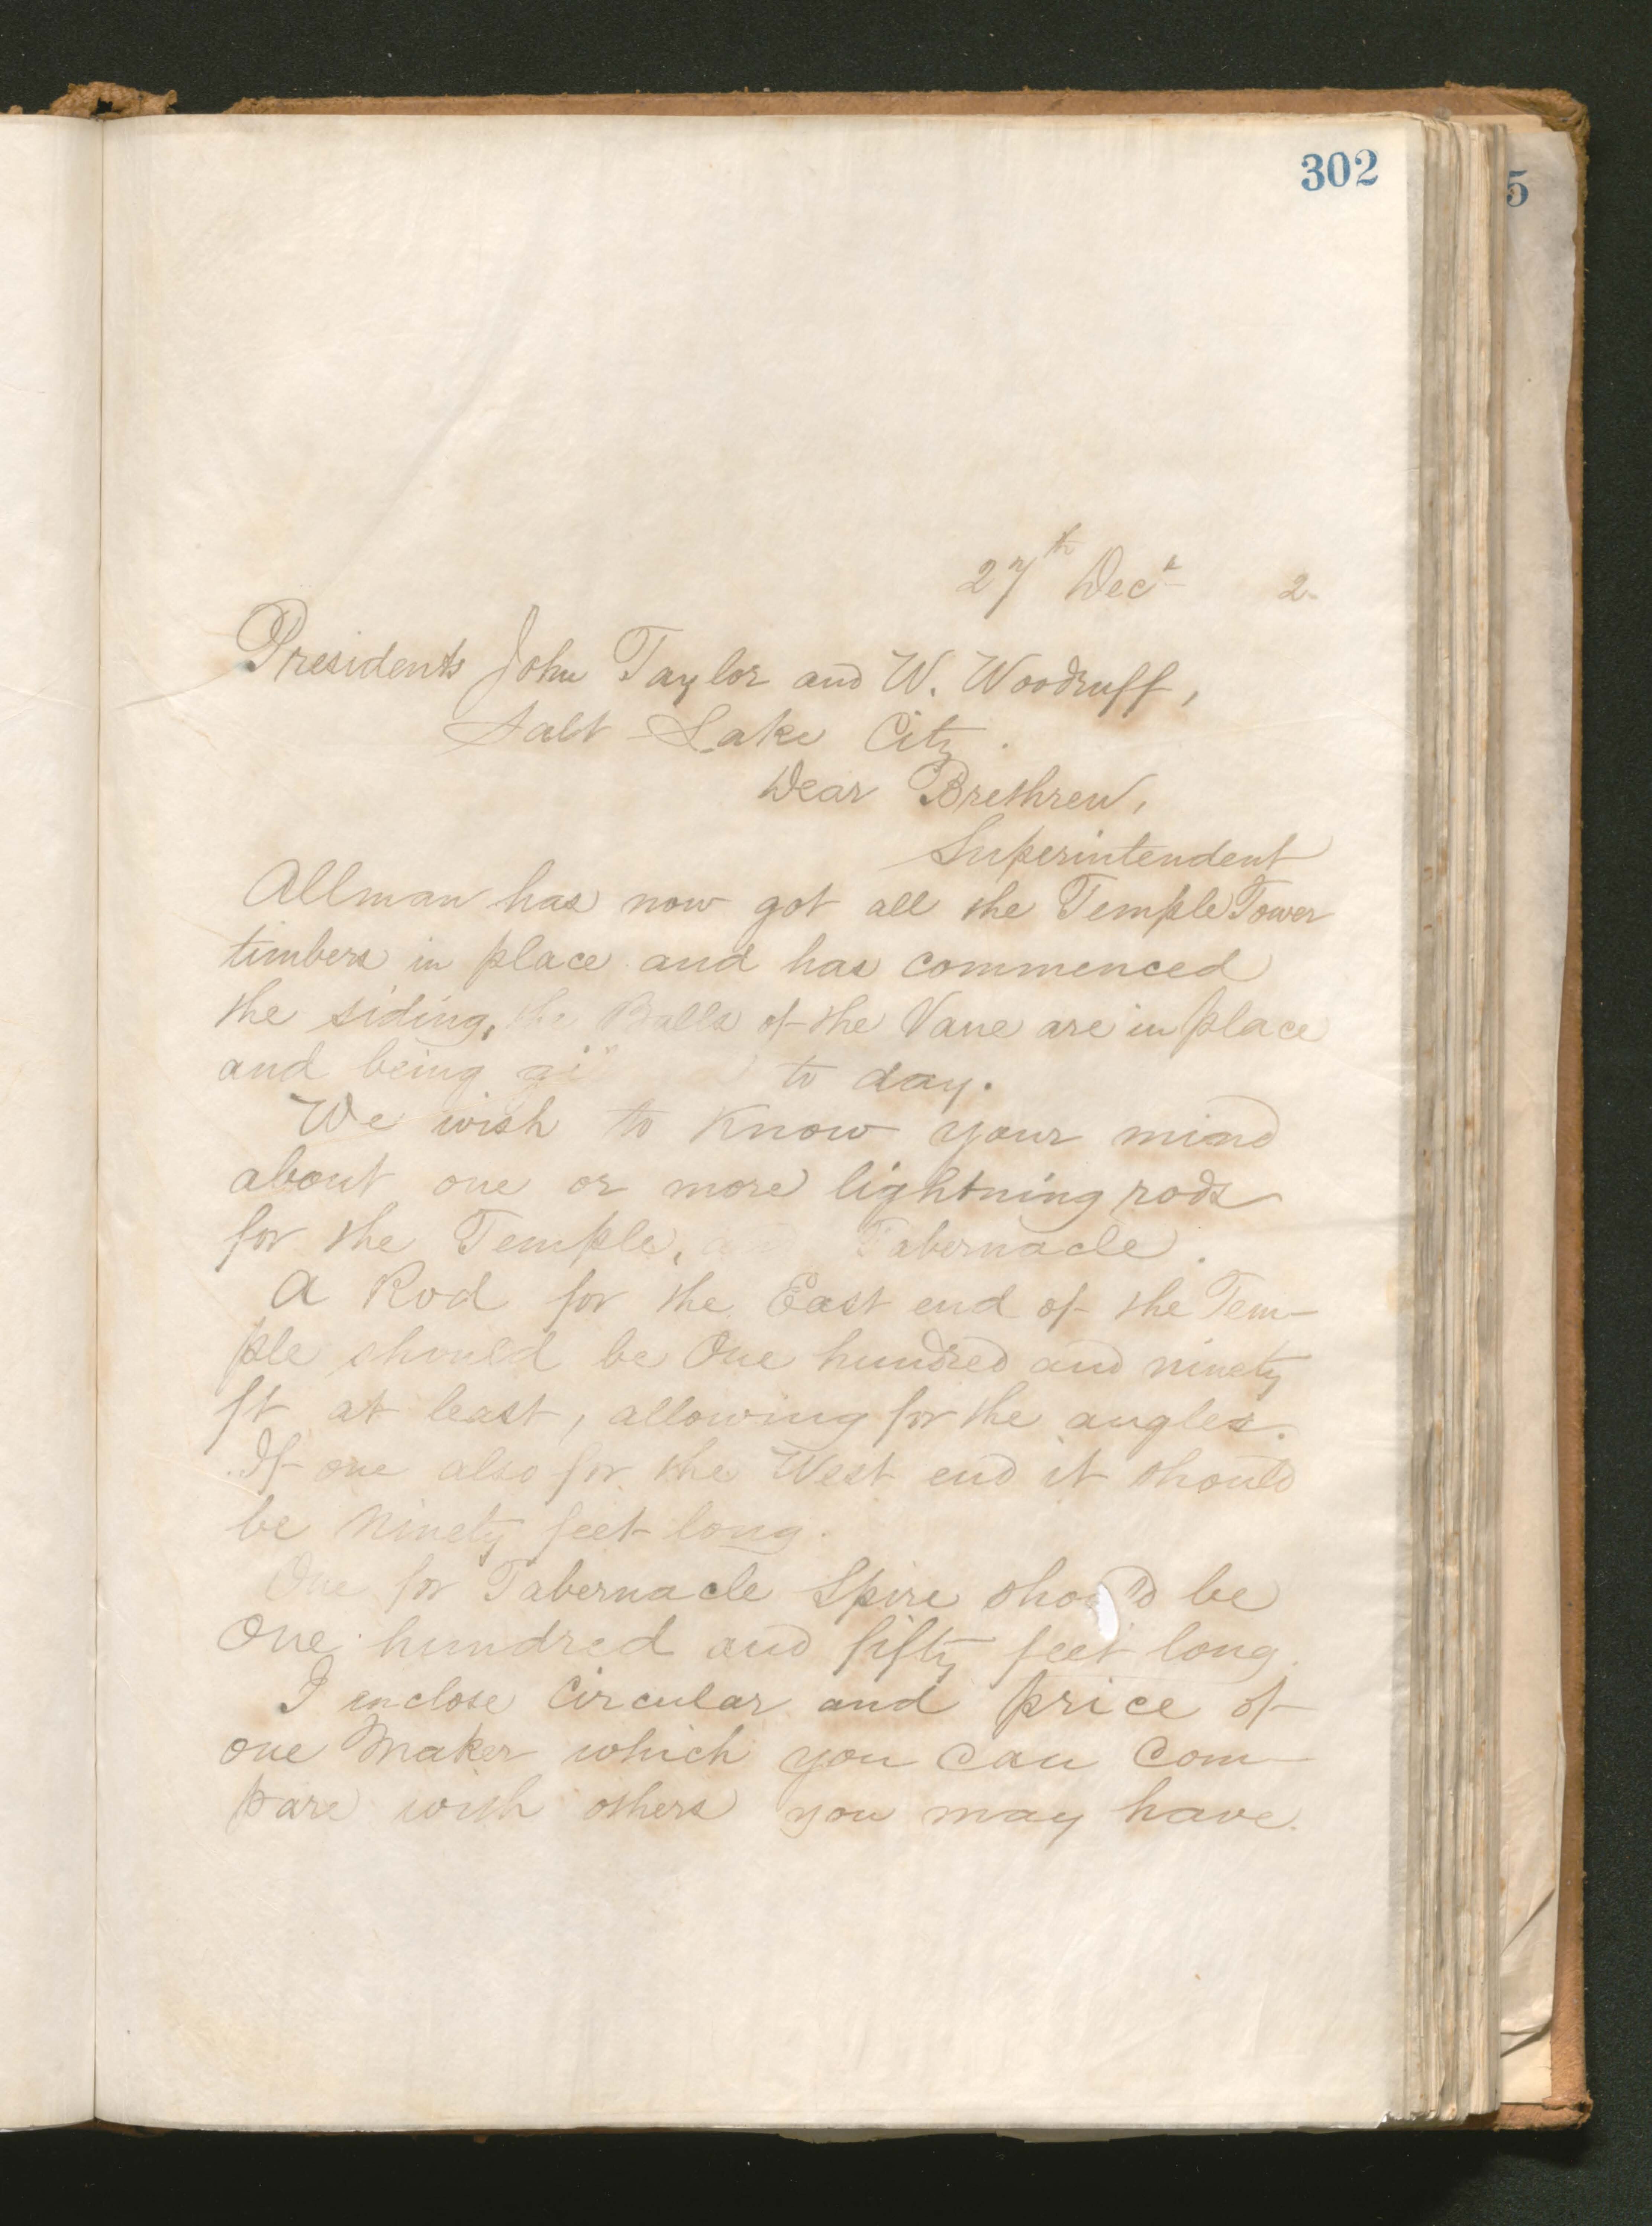 302
5
27th Decr 2
Presidents John Taylor and W. Woodruff,
Salt Lake City.
Dear Brethren,
Superintendent
Allman has now got all the Temple Tower
timbers in place and has commenced
the siding, the Balls of the Vane are in place
and being to day.
We wish to know your mind
about one or more lightning rods
for the Temple, Tabernacle.
A Rod for the East end of the Tem-
ple should be One hundred and ninety
ft at least, allowing for the angles.
If one also for the West end it should
be Ninety feet long.
One for Tabernacle Spire should be
One hundred and fifty feet long.
I enclose Circular and price of
one Maker which you can Com-
pare with others you may have.